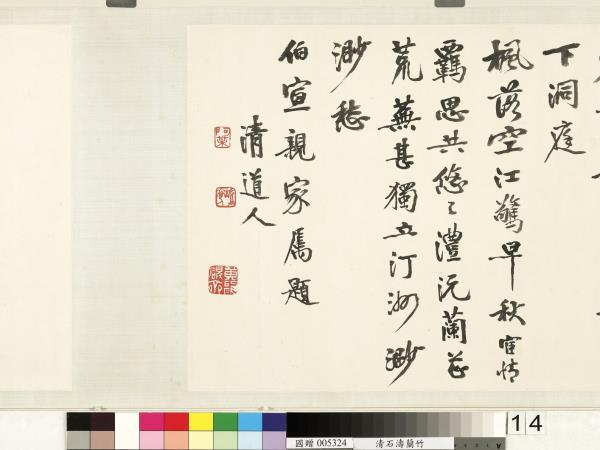 下洞庭
楓落空江驚早秋宦情
羈思共悠〻澧沅蘭芷
荒蕪甚獨立汀洲渺
渺愁
伯宣親家屬題
清道人
14
國贈 005324
清石濤蘭竹